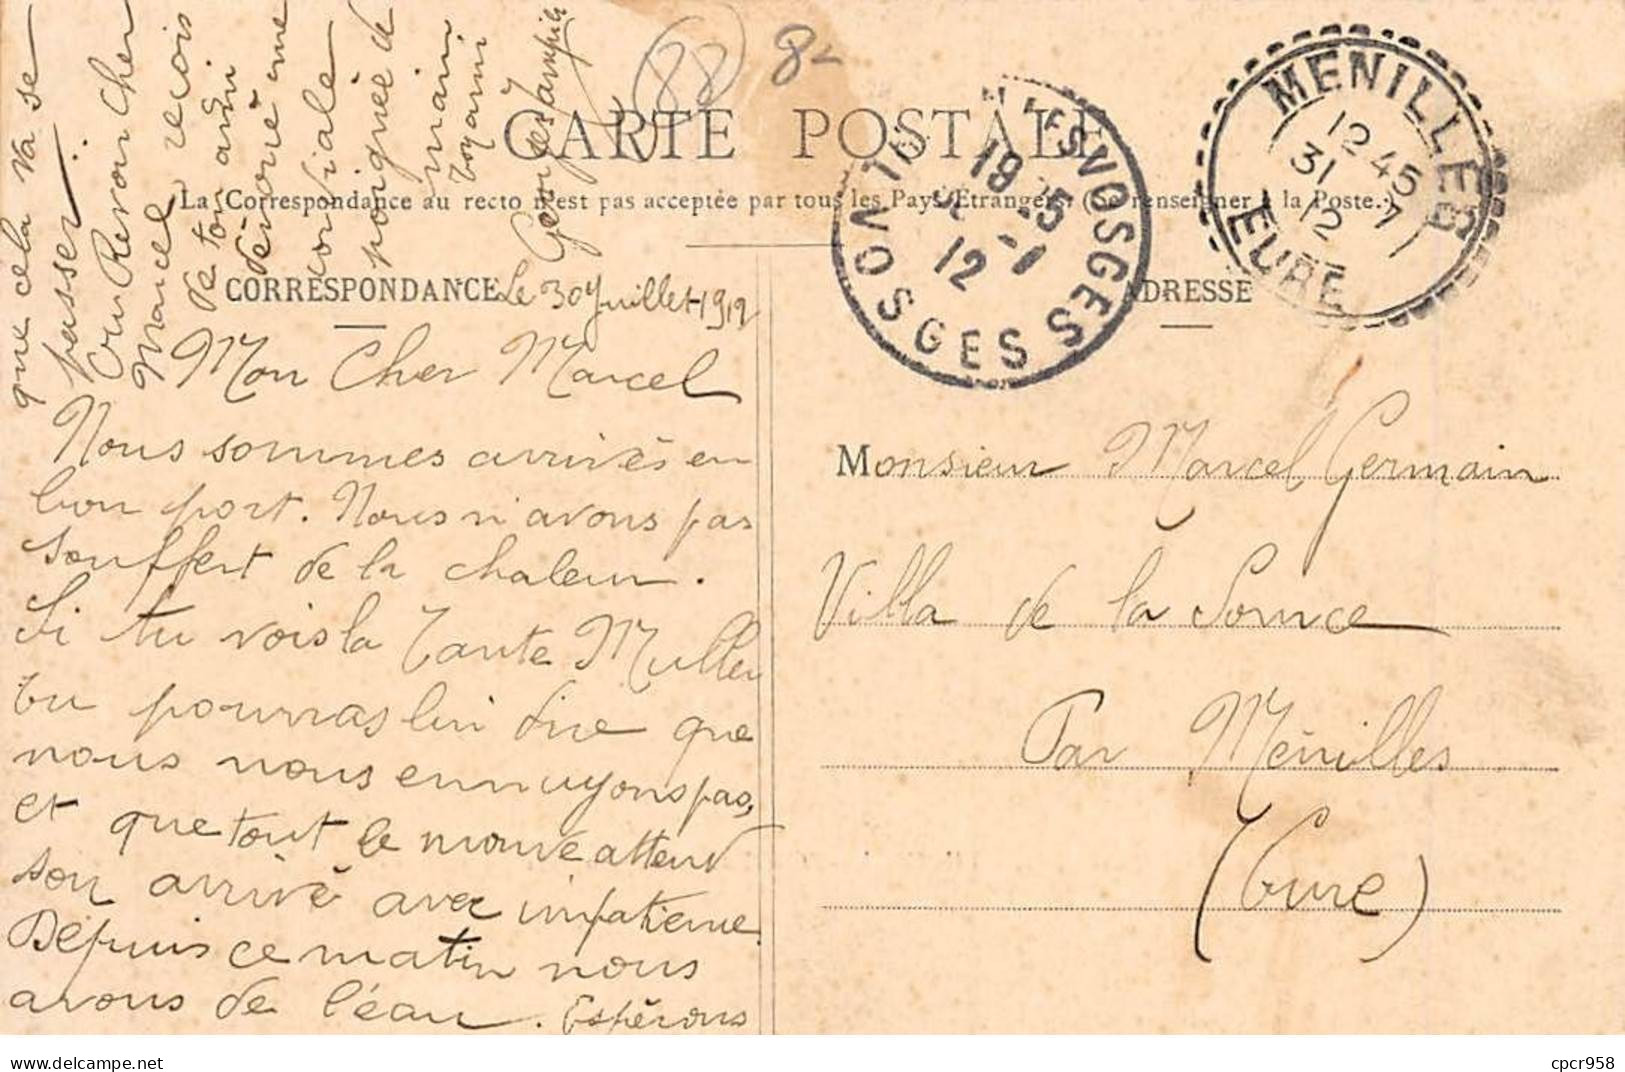 (88) 8-
CARTE POSTALE
La Correspondance au recto n'est pas acceptée par tous les Pays Etrangers. (Se renseigner à la Poste.)
CORRESPONDANCE
ADRESSE
MENILLES
12 45
31 - 7
12
EURE
VOSGES
19
5 - 1
12
VOSGES
Le 30 Juillet 1912
Mon Cher Marcel
Nous sommes arrivés en
bon port. Nous n'avons pas
souffert de la chaleur.
Si tu vois la Tante Muller
tu pourras lui dire que
nous nous ennuyons pas,
et que tout le monde attend
son arrivé avec impatience.
Depuis ce matin nous
avons de l'eau. Espérons
que cela va se
passer.
Au Revoir Cher
Marcel recois
de ton ami
dévoué une
cordiale
poignée de
main
Ton ami
Georges
Monsieur Marcel Germain
Villa de la Source
Par Ménilles
(Eure)
cpcr958